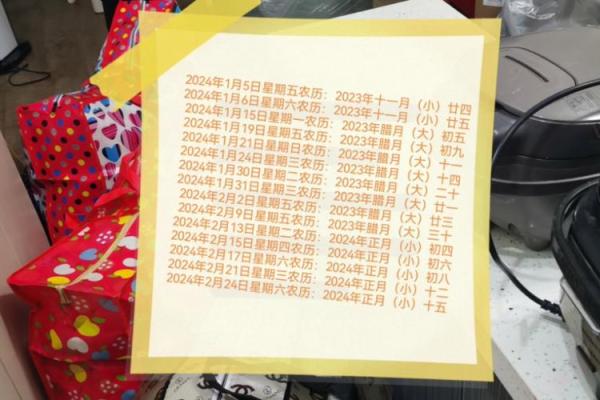 2024年1月5日星期五农历：2023年十一月（小）廿四
2024年1月6日星期六农历：2023年十一月（小）廿五
2024年1月15日星期一农历：2023年腊月（大）初五
2024年1月19日星期五农历：2023年腊月（大）初九
2024年1月21日星期日农历：2023年腊月（大）十一
2024年1月24日星期三农历：2023年腊月（大）十四
2024年1月30日星期二农历：2023年腊月（大）二十
2024年1月31日星期三农历：2023年腊月（大）廿一
2024年2月2日星期五农历：2023年腊月（大）廿三
2024年2月9日星期五农历：2023年腊月（大）三十
2024年2月13日星期二农历：2024年正月（小）初四
2024年2月15日星期四农历：2024年正月（小）初六
2024年2月17日星期六农历：2024年正月（小）初八
2024年2月21日星期三农历：2024年正月（小）十二
2024年2月24日星期六农历：2024年正月（小）十五